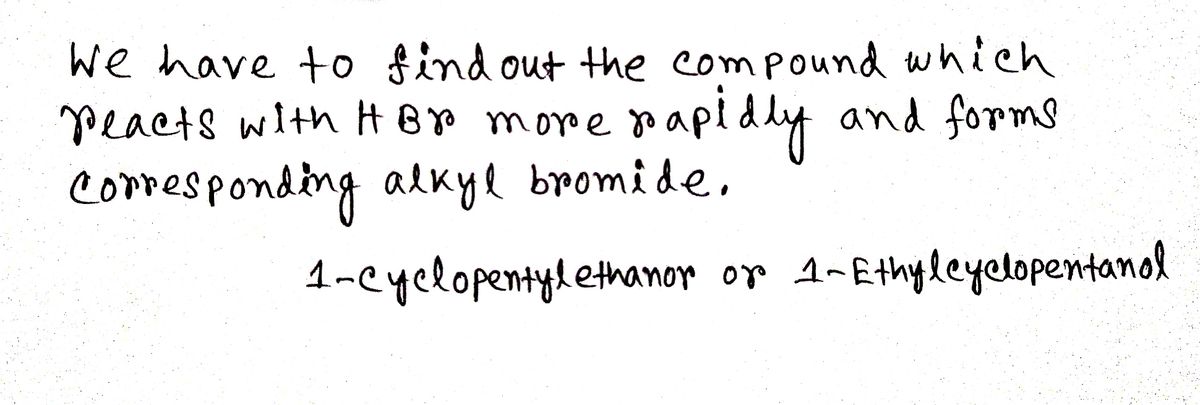 We have to find out the compound which
reacts with HBr more rapidly and forms
corresponding alkyl bromide.
1-cyclopentylethanor or 1-Ethylcyclopentanol